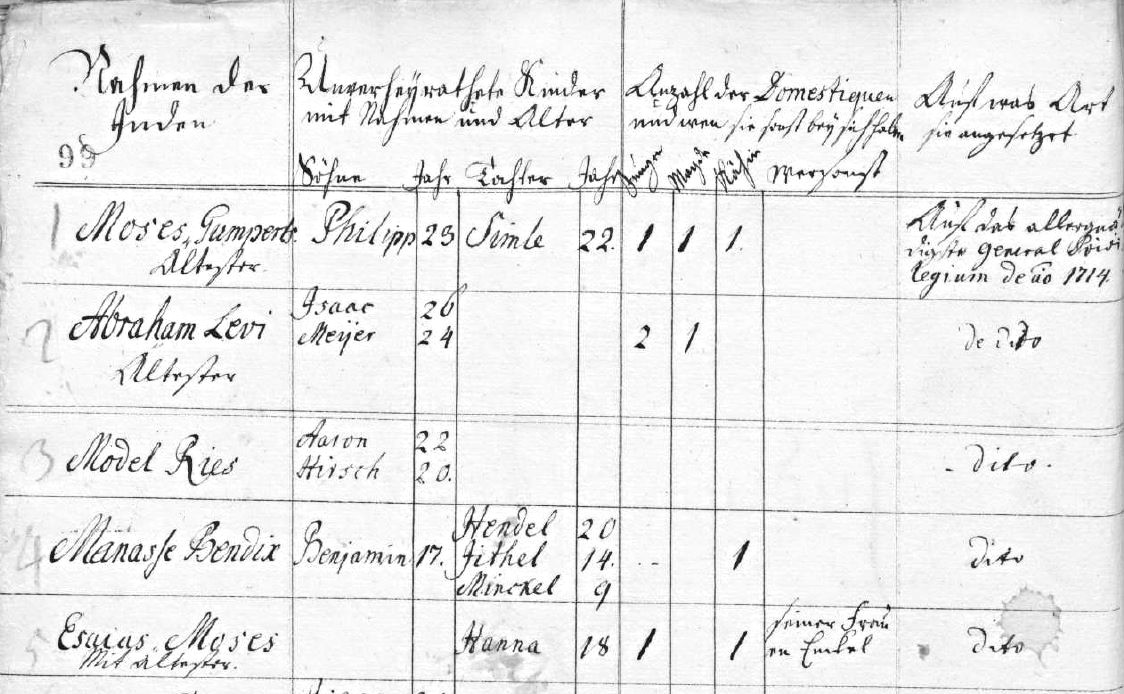 Nahmen der
Juden
99
Unverheyrathete Kinder
mit Nahmen und Alter
Anzahl der Domestiquen
und wen sie sonst bey sich haben
Auf was Art
sie angesetzet
Söhne Jahr Tochter Jahr Mägde Wer sonst
1 Moses Gumperts Philipp 23 Simle 22. 1 1 1.
Ältester.
Auf das allergnä
digste General Privi
legium de ao 1714.
2 Abraham Levi
Ältester
Isaac 26
Meyer 24 2 1 de dito
3 Model Ries
Aaron 22
Hirsch 20. - dito -
4 Manasse Bendix Benjamin 17.
Hendel 20
Jithel 14. 1 dito
Minckel 9
5 Esaias Moses
Mit Ältester.
Hanna 18 1 1
seiner Frau
en Enckel
dito